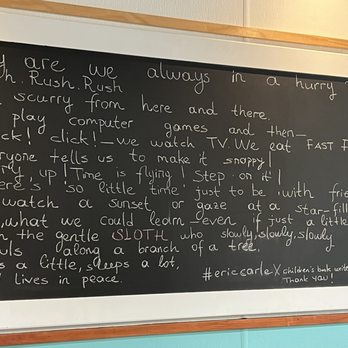 y are we always in a hurry
h. Rush. Rush
scurry from here and there.
play computer games and then—
ck! click!—we watch TV. We eat FAST F
ryone tells us to make it snappy!
rry, up! Time is flying! Step on it!
ere's so little time just to be with frie
watch a sunset or gaze at a star-fill
, what we could learn even if just a little
the gentle SLOTH who slowly, slowly, slowly
wls along a branch of a tree.
s a little, sleeps a lot,
lives in peace.
#ericcarle X children's book write
Thank you!